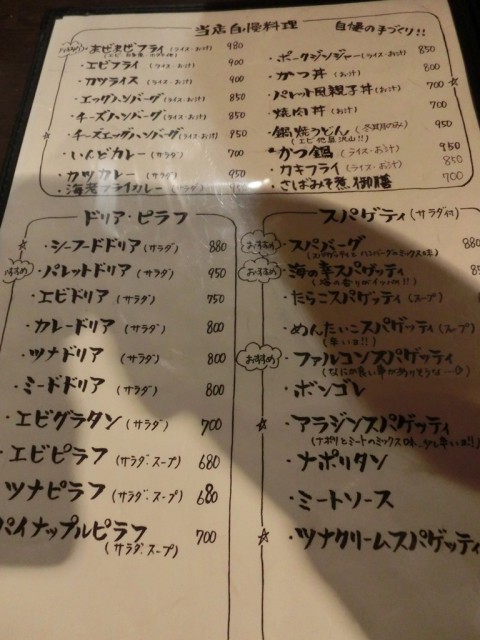 当店自慢料理 自慢の手づくり!!
まぜまぜフライ (ライス・お汁) 980
・エビフライ (ライス・お汁) 900
・カツライス (ライス・お汁) 900
・エッグハンバーグ (ライス・お汁) 850
・チーズハンバーグ (ライス・お汁) 850
・チーズエッグハンバーグ (ライス・お汁) 950
・いんどカレー (サラダ) 700
・カツカレー (サラダ) 950
・海老フライカレー (サラダ) 950
・ポークジンジャー (ライス・お汁) 850
・かつ丼 (お汁) 800
・パレット風親子丼 (お汁) 700
・焼肉丼 (お汁) 700
・鍋焼うどん (冬期のみ) 950
(エビ他具沢山!!)
・かつ鍋 (ライス・お汁) 950
・カキフライ (ライス・お汁) 850
・さばみそ煮御膳 700
ドリア・ピラフ
・シーフードドリア (サラダ) 880
・パレットドリア (サラダ) 950
・エビドリア (サラダ) 750
・カレードリア (サラダ) 800
・ツナドリア (サラダ) 800
・ミートドリア (サラダ) 800
・エビグラタン (サラダ) 700
・エビピラフ (サラダ・スープ) 680
ツナピラフ (サラダ・スープ) 680
パイナップルピラフ 700
(サラダ・スープ)
スパゲティ (サラダ付)
おすすめ ・スパバーグ 880
(スパゲティとハンバーグのミックス味)
おすすめ ・海の幸スパゲッティ
(海の香りがイッパイ!!)
・たらこスパゲッティ (スープ)
・めんたいこスパゲッティ (スープ)
(辛い!!)
おすすめ ・ファルコンスパゲッティ
(なにか良い事がありそうな…)
・ボンゴレ
・アラジンスパゲッティ
(ナポリとミートのミックス味、少々辛い!!)
・ナポリタン
・ミートソース
・ツナクリームスパゲッティ